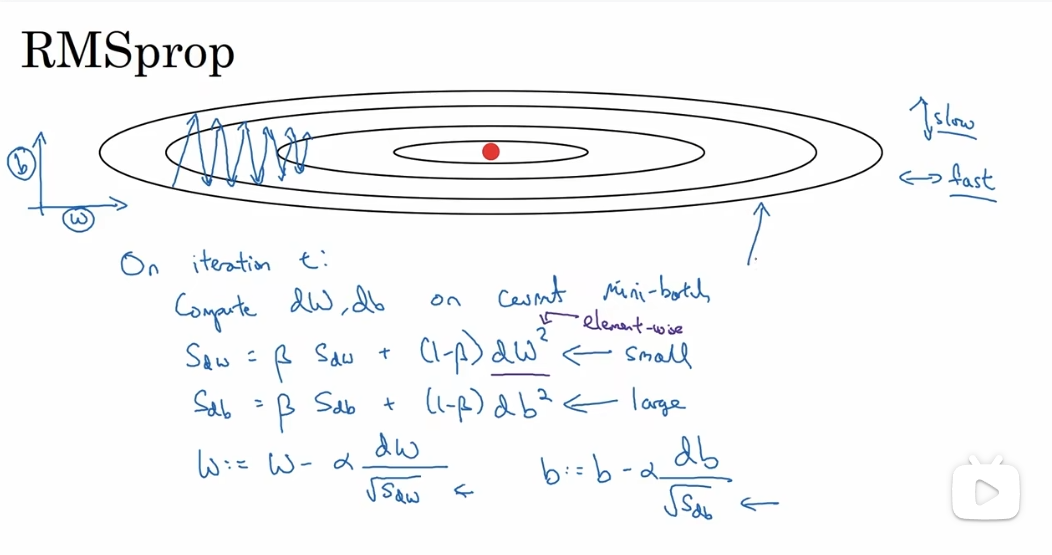 RMSprop
slow
b
fast
w
On iteration t:
Compute dW, db on current mini-batch
element-wise
S_dw = β S_dw + (1-β) dW² ← small
S_db = β S_db + (1-β) db² ← large
W := W - α dW/√S_dw ← b := b - α db/√S_db ←